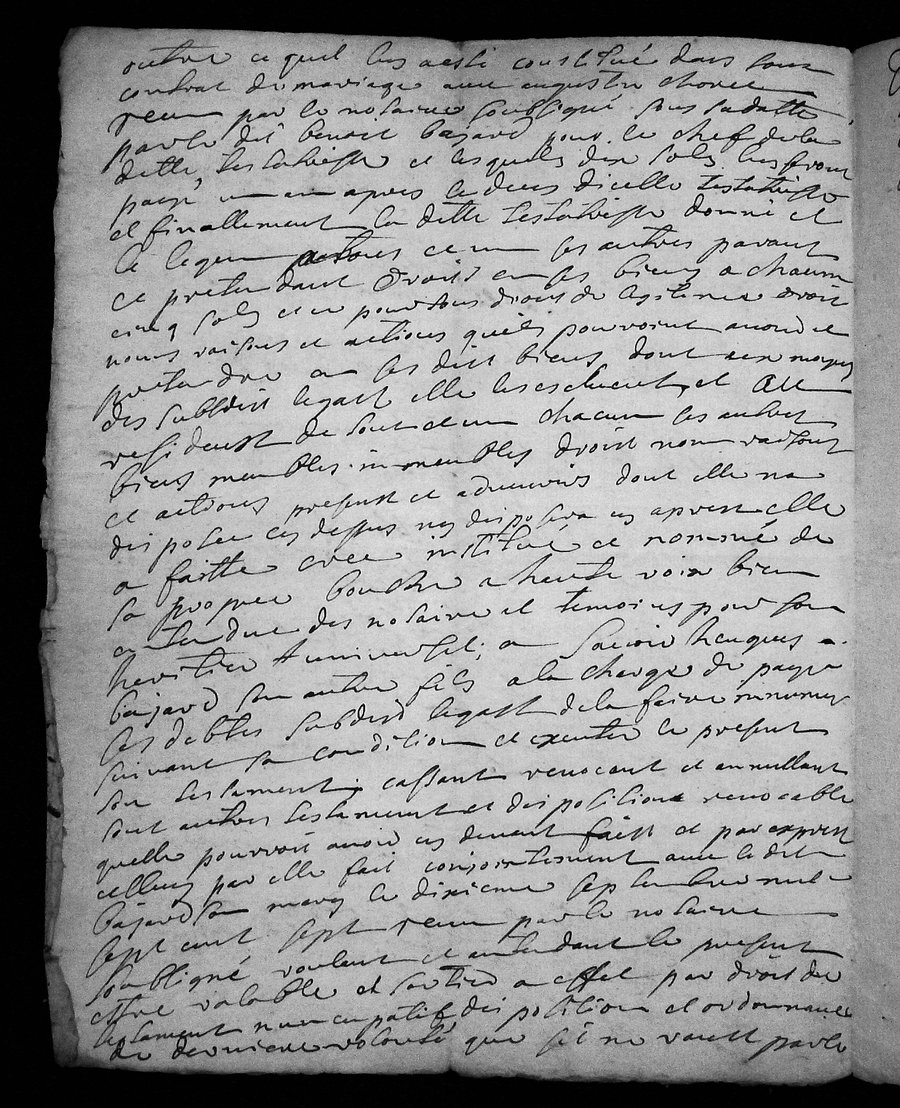 outre ce quil luy a esté constitué dans son
contrat de mariage avec augustin
receu par le notaire soubsigné sous sa datte
par le dit benoit bajard pour le chef de la
ditte testatrisse et lesquels dix sols luy seront
payé un an apres le deces dicelle testatrisse
et finallement la ditte testatrisse donne et
legue a tous et un les autres parants
ce pretendant droit en ses biens a chacun
cinq sols et ce pour tous droits de legitime droit
noms raisons et actions quils pourroint avoir et
pretendre en ses dits biens dont au moyen
des subdits legast elle les esclueent et au
resident de tout et un chacun ses autres
biens meubles immeubles droits noms raisons
et actions presents et advenirs dont elle na
disposee cy dessus ny disposera cy apres elle
a faitte cree institué et nommé de
sa propre bouche a haute voix bien
entendue des notaire et temoins pour son
heritier universel, a savoir Jacques
bajard son autre fils a la charge de payer
ses debtes subdits legast de la faire
suivant sa condition et executer le present
son testament cassant revocant et annullant
tout autres testament et disposition revocable
quelle pourroit avoir cy devant faist et par expres
celluy par elle fait conjointement avec le dit
bajard son mary le dixieme septembre mil
sept cent sept receu par le notaire
soubsigné voulant et entendant le present
estre valable et sortir a effet par droit de
testament nuncupatif disposition et ordonnance
de derniere volonté que sil ne vaut par le